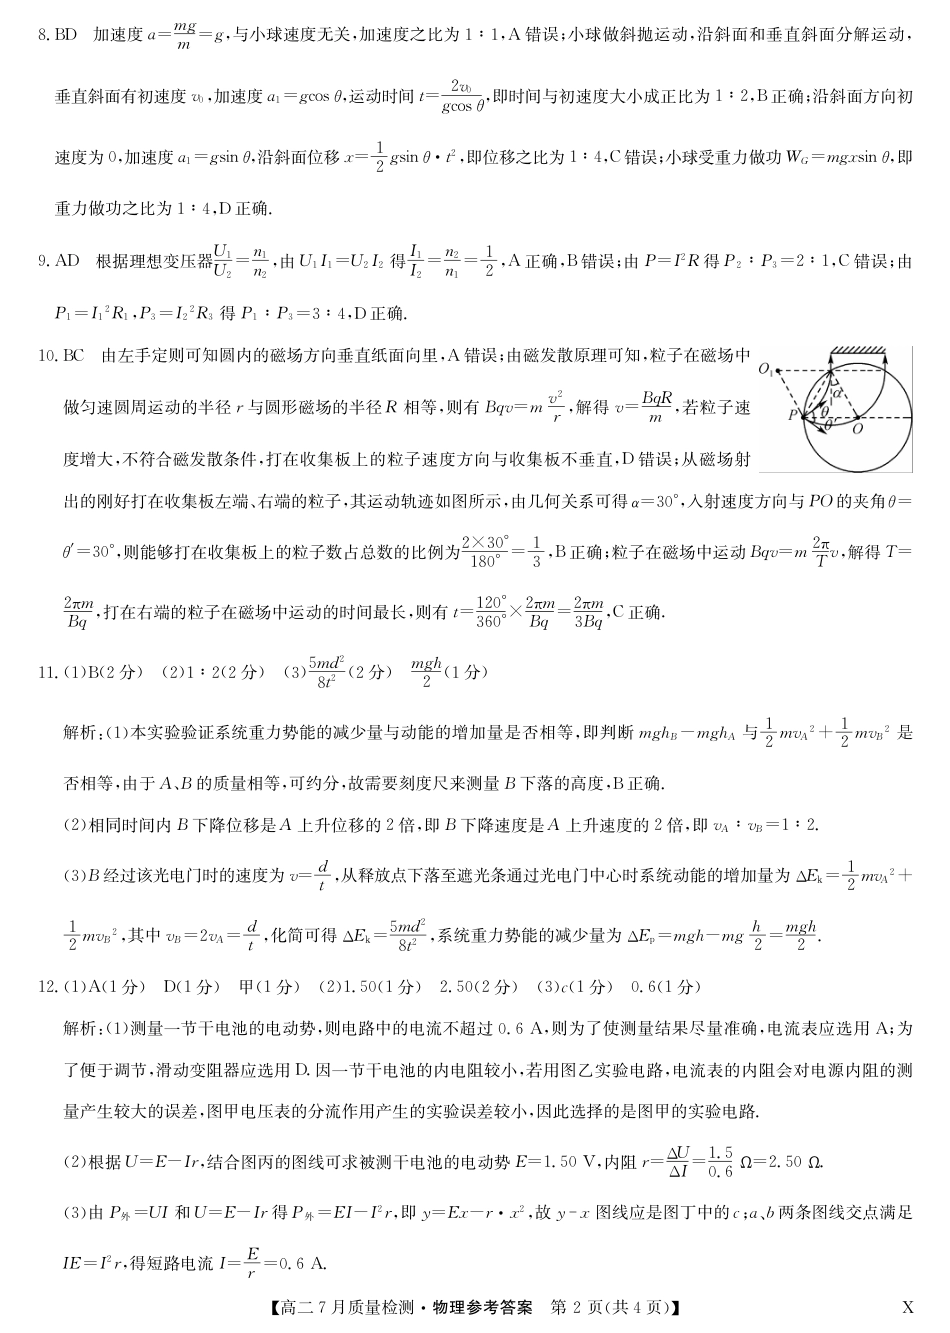 8. BD　加速度 a=mg/m=g,与小球速度无关,加速度之比为 1∶1,A 错误;小球做斜抛运动,沿斜面和垂直斜面分解运动,
垂直斜面有初速度 v₀,加速度 a₁=gcos θ,运动时间 t=2v₀/(gcos θ),即时间与初速度大小成正比为 1∶2,B 正确;沿斜面方向初
速度为 0,加速度 a₁=gsin θ,沿斜面位移 x=1/2 gsin θ·t²,即位移之比为 1∶4,C 错误;小球受重力做功 W_G=mgxsin θ,即
重力做功之比为 1∶4,D 正确.
9. AD　根据理想变压器U₁/U₂=n₁/n₂,由 U₁I₁=U₂I₂ 得I₁/I₂=n₂/n₁=1/2,A 正确,B 错误;由 P=I²R 得 P₂∶P₃=2∶1,C 错误;由
P₁=I₁²R₁,P₃=I₂²R₃ 得 P₁∶P₃=3∶4,D 正确.
10. BC　由左手定则可知圆内的磁场方向垂直纸面向里,A 错误;由磁发散原理可知,粒子在磁场中
做匀速圆周运动的半径 r 与圆形磁场的半径 R 相等,则有 Bqv=m v²/r,解得 v=BqR/m,若粒子速
度增大,不符合磁发散条件,打在收集板上的粒子速度方向与收集板不垂直,D 错误;从磁场射
O₁
α
P
θ
θ′
O
出的刚好打在收集板左端、右端的粒子,其运动轨迹如图所示,由几何关系可得 α=30°,入射速度方向与 PO 的夹角 θ=
θ′=30°,则能够打在收集板上的粒子数占总数的比例为2×30°/180°=1/3,B 正确;粒子在磁场中运动 Bqv=m 2π/T v,解得 T=
2πm/Bq,打在右端的粒子在磁场中运动的时间最长,则有 t=120°/360°×2πm/Bq=2πm/3Bq,C 正确.
11. (1)B(2 分)　(2)1∶2(2 分)　(3)5md²/8t²(2 分)　mgh/2(1 分)
解析:(1)本实验验证系统重力势能的减少量与动能的增加量是否相等,即判断 mgh_B−mgh_A 与1/2 mv_A²+1/2 mv_B² 是
否相等,由于 A、B 的质量相等,可约分,故需要刻度尺来测量 B 下落的高度,B 正确.
(2)相同时间内 B 下降位移是 A 上升位移的 2 倍,即 B 下降速度是 A 上升速度的 2 倍,即 v_A∶v_B=1∶2.
(3)B 经过该光电门时的速度为 v=d/t,从释放点下落至遮光条通过光电门中心时系统动能的增加量为 ΔE_k=1/2 mv_A²+
1/2 mv_B²,其中 v_B=2v_A=d/t,化简可得 ΔE_k=5md²/8t²,系统重力势能的减少量为 ΔE_p=mgh−mg h/2=mgh/2.
12. (1)A(1 分)　D(1 分)　甲(1 分)　(2)1.50(1 分)　2.50(2 分)　(3)c(1 分)　0.6(1 分)
解析:(1)测量一节干电池的电动势,则电路中的电流不超过 0.6 A,则为了使测量结果尽量准确,电流表应选用 A;为
了便于调节,滑动变阻器应选用 D. 因一节干电池的内电阻较小,若用图乙实验电路,电流表的内阻会对电源内阻的测
量产生较大的误差,图甲电压表的分流作用产生的实验误差较小,因此选择的是图甲的实验电路.
(2)根据 U=E−Ir,结合图丙的图线可求被测干电池的电动势 E=1.50 V,内阻 r=ΔU/ΔI=1.5/0.6 Ω=2.50 Ω.
(3)由 P外=UI 和 U=E−Ir 得 P外=EI−I²r,即 y=Ex−r·x²,故 y-x 图线应是图丁中的 c;a、b 两条图线交点满足
IE=I²r,得短路电流 I=E/r=0.6 A.
【高二 7 月质量检测·物理参考答案　第 2 页(共 4 页)】　X